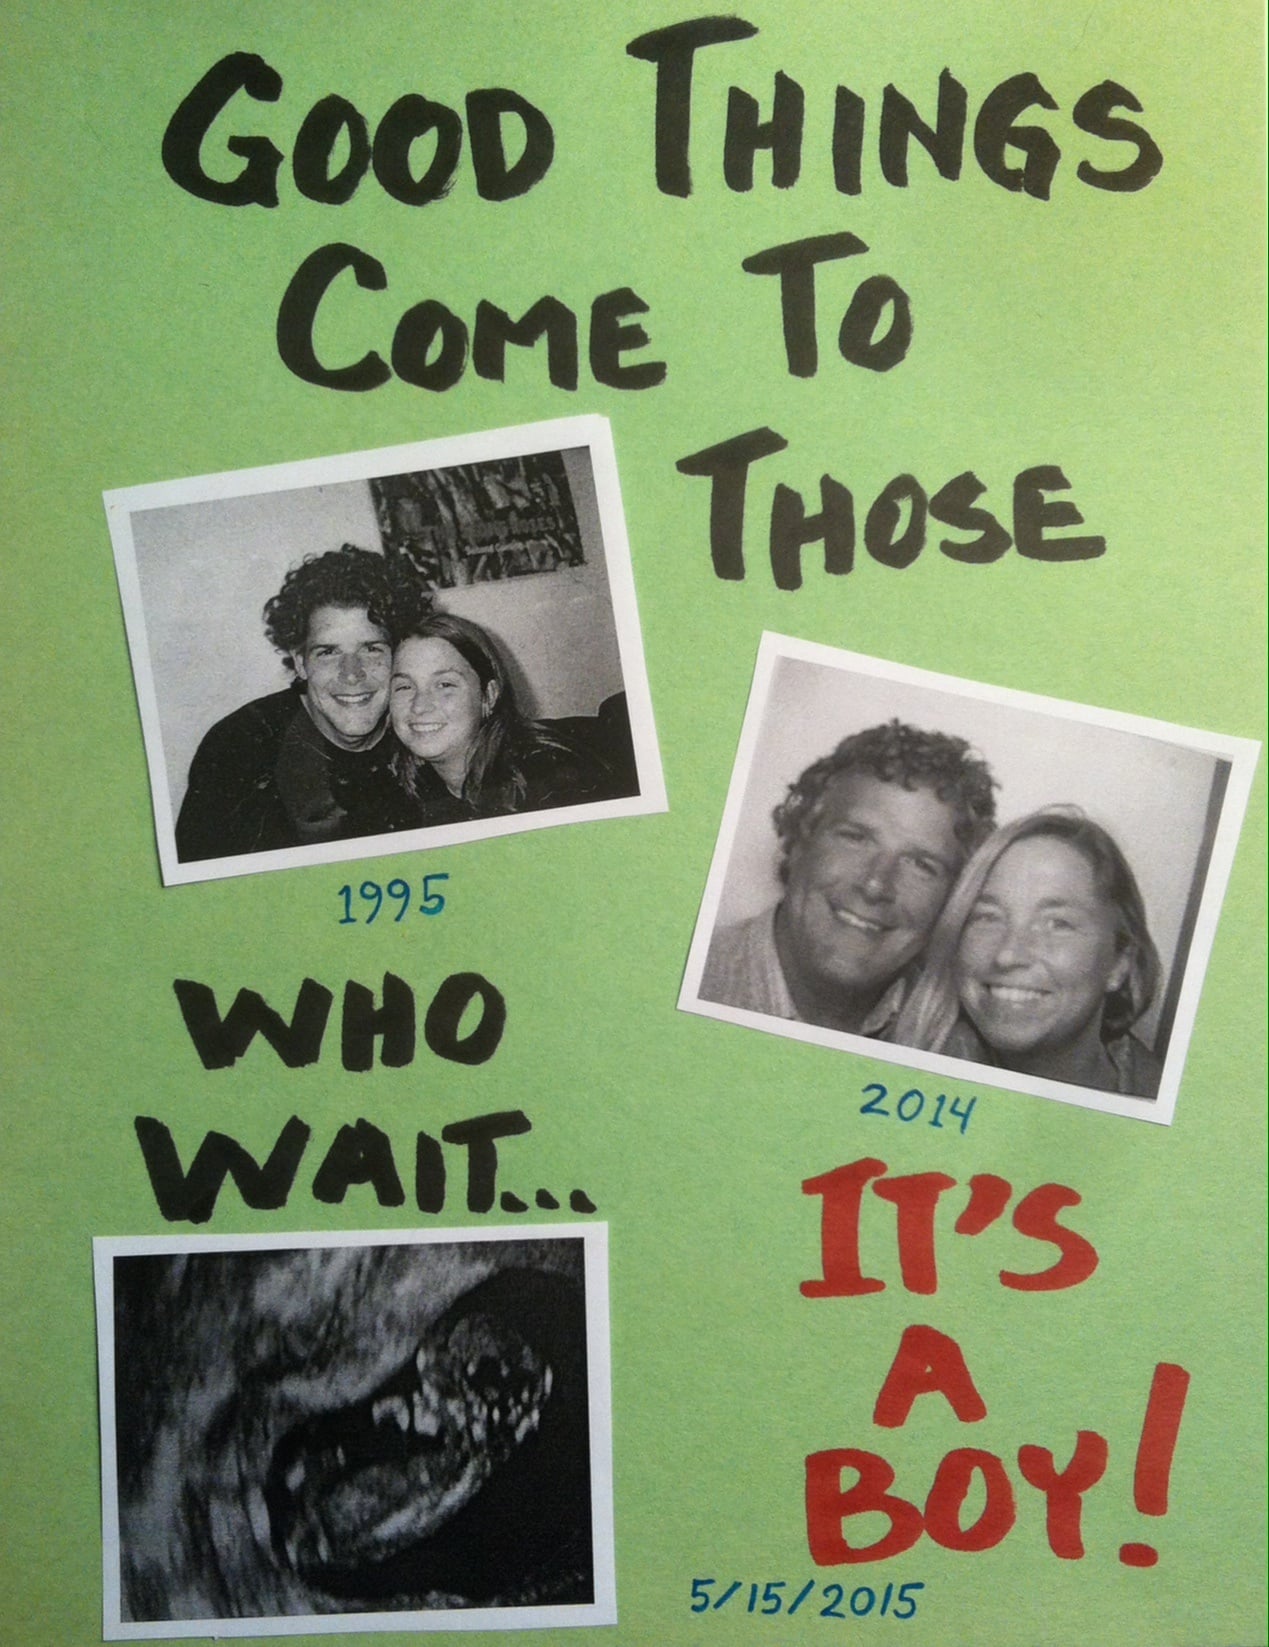 GOOD THINGS
COME TO
THOSE
1995
2014
WHO
WAIT...
IT'S
A
BOY!
5/15/2015